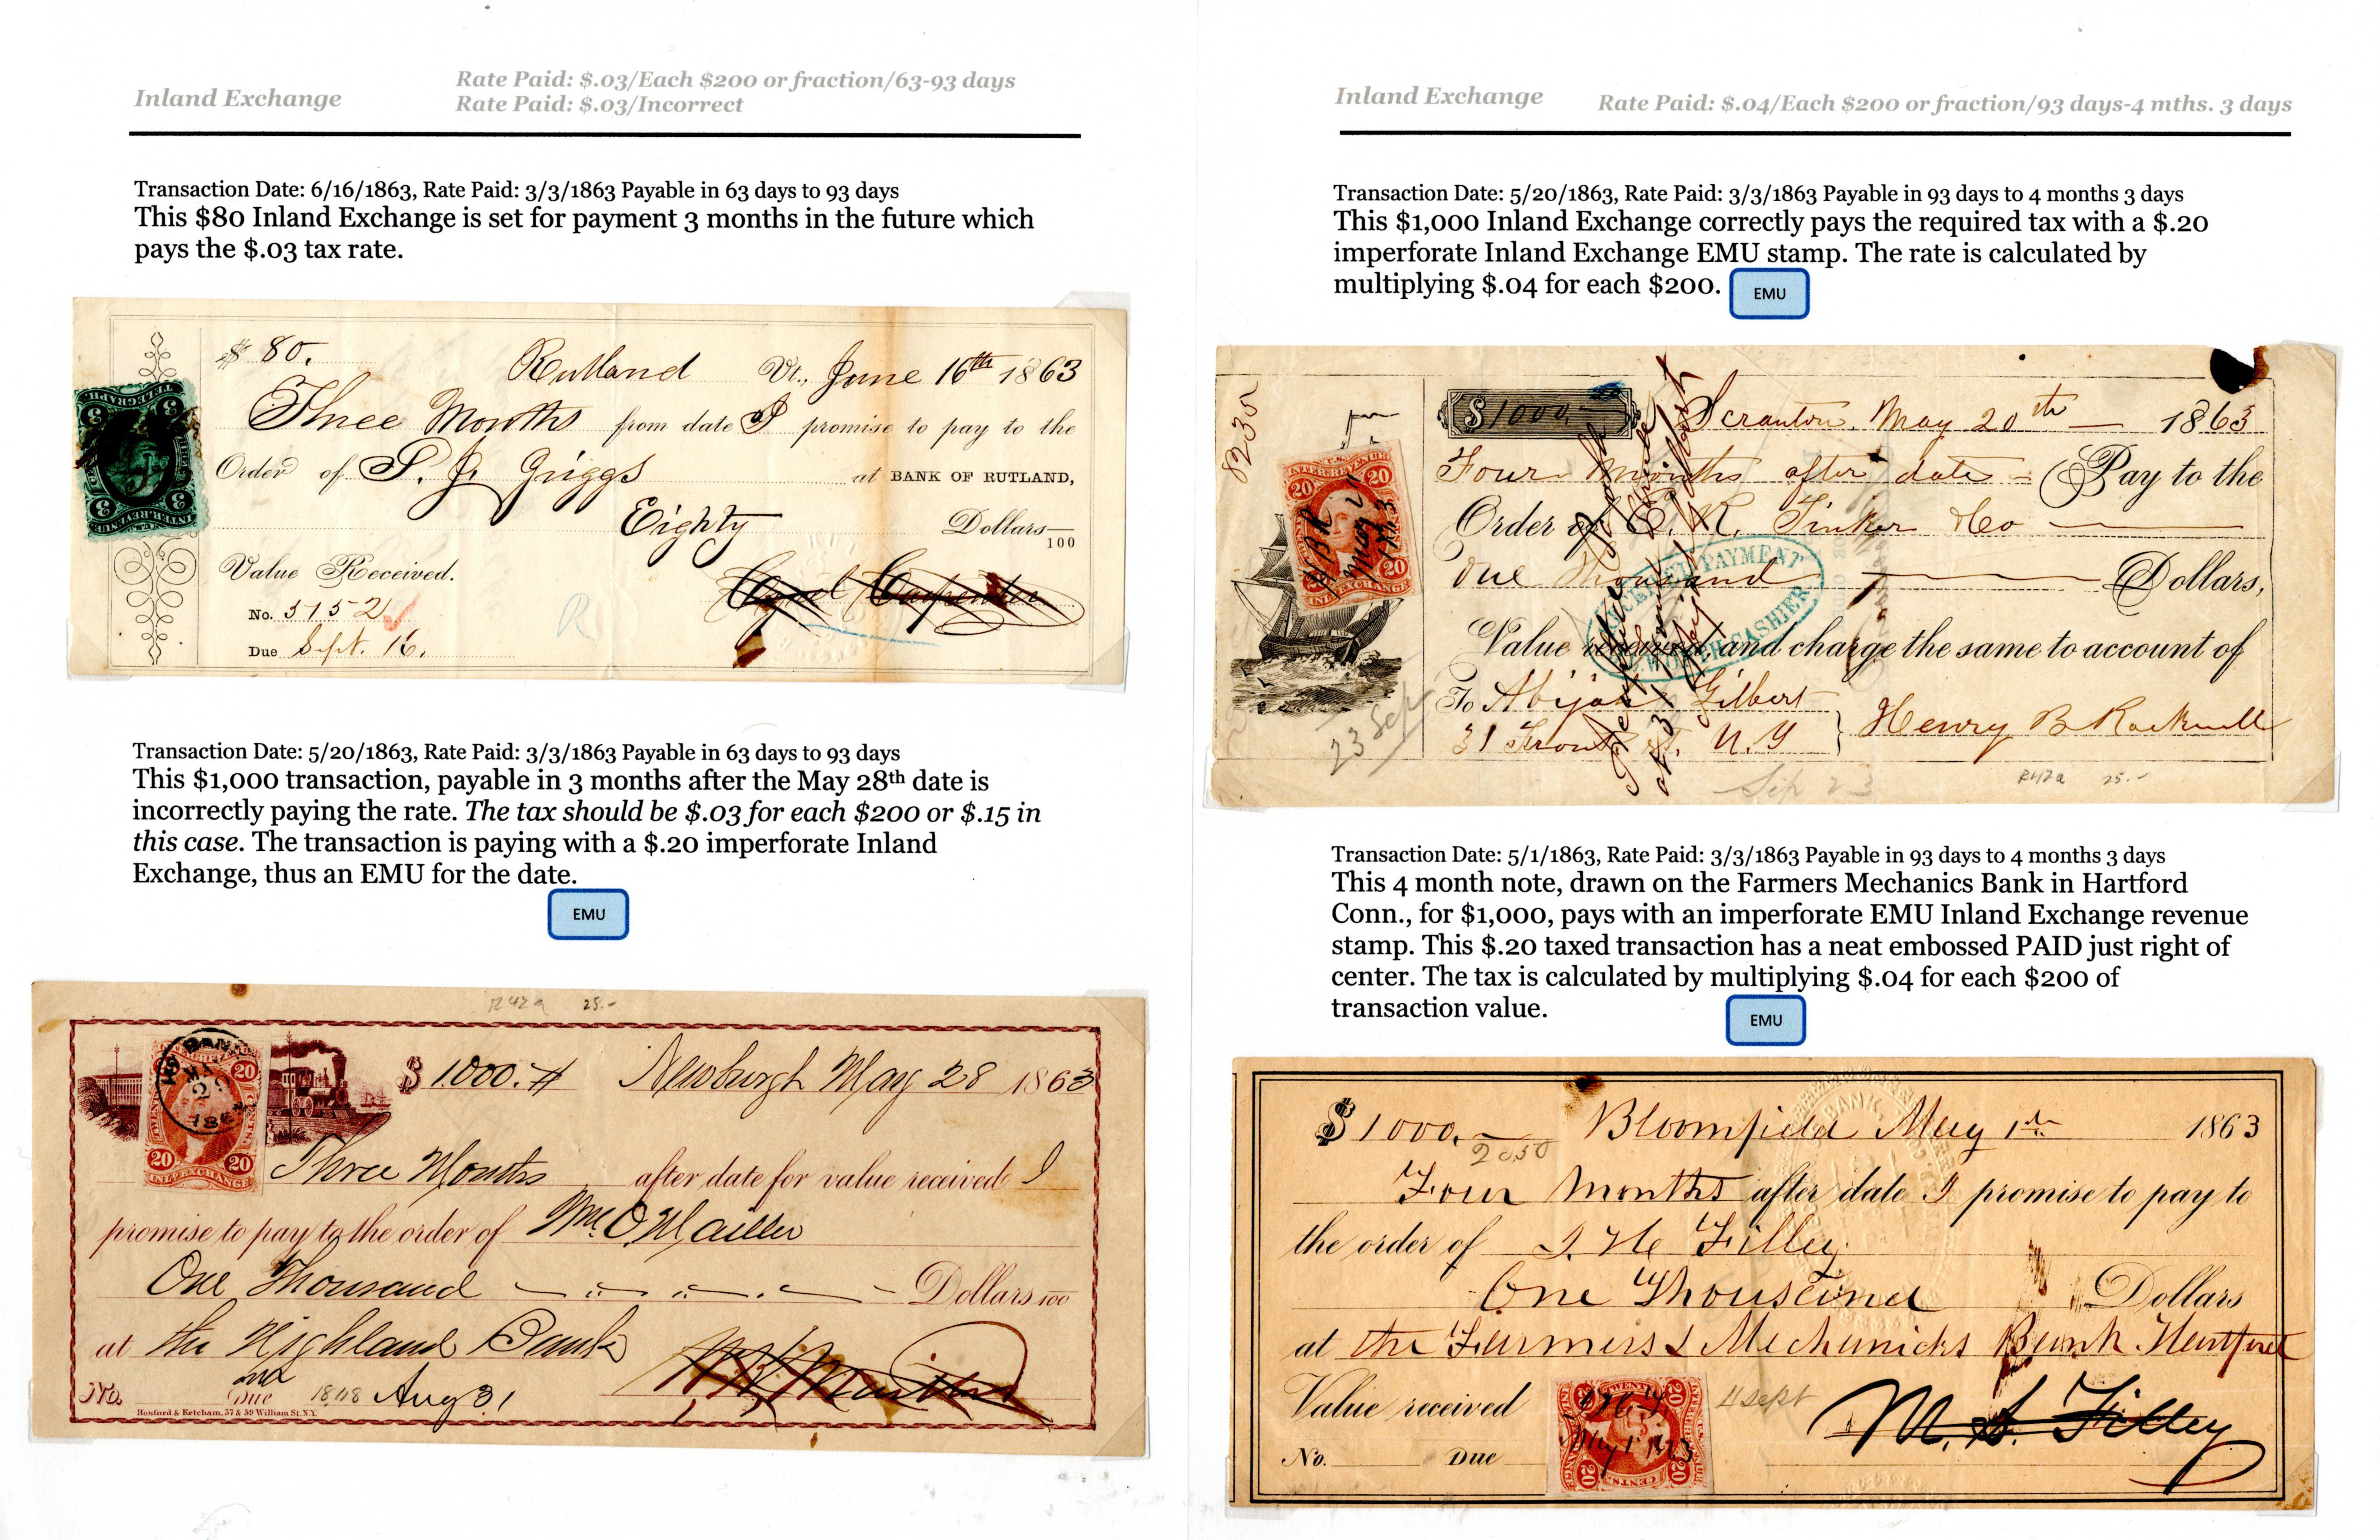 Inland Exchange
Rate Paid: $.03/Each $200 or fraction/63-93 days
Rate Paid: $.03/Incorrect
Transaction Date: 6/16/1863, Rate Paid: 3/3/1863 Payable in 63 days to 93 days
This $80 Inland Exchange is set for payment 3 months in the future which
pays the $.03 tax rate.
$ 80.
Rutland Vt., June 16th 1863
Three Months from date I promise to pay to the
Order of S. J. Griggs at BANK OF RUTLAND,
Eighty Dollars
100
Value Received.
No. 3152
Due Sept. 16.
TELEGRAPH
3 3
3 3
INTER. REVENUE
Transaction Date: 5/20/1863, Rate Paid: 3/3/1863 Payable in 63 days to 93 days
This $1,000 transaction, payable in 3 months after the May 28th date is
incorrectly paying the rate. The tax should be $.03 for each $200 or $.15 in
this case. The transaction is paying with a $.20 imperforate Inland
Exchange, thus an EMU for the date.
EMU
R42a 25.-
$ 1000.# Newburgh May 28 1863
Three Months after date for value received I
promise to pay to the order of Wm. O. Mailler
One Thousand Dollars 100
at the Highland Bank
No. Due Aug 31
Hosford & Ketcham, 57 & 59 William St. N.Y.
20
20 20
INL. EXCHANGE
Inland Exchange
Rate Paid: $.04/Each $200 or fraction/93 days-4 mths. 3 days
Transaction Date: 5/20/1863, Rate Paid: 3/3/1863 Payable in 93 days to 4 months 3 days
This $1,000 Inland Exchange correctly pays the required tax with a $.20
imperforate Inland Exchange EMU stamp. The rate is calculated by
multiplying $.04 for each $200.
EMU
$1000.- Scranton, May 20th 1863
Four Months after date Pay to the
Order of C. R. Tinker & Co
One Thousand Dollars,
Value received and charge the same to account of
To Abijah Gilbert
31 Front St. N.Y Henry B Rockwell
INTER. REVENUE
20 20
20
INL. EXCHANGE
HBR
May 21
1863
PAYMENT
CASHIER
23 Sep
Sep 23
R42a 25.-
Transaction Date: 5/1/1863, Rate Paid: 3/3/1863 Payable in 93 days to 4 months 3 days
This 4 month note, drawn on the Farmers Mechanics Bank in Hartford
Conn., for $1,000, pays with an imperforate EMU Inland Exchange revenue
stamp. This $.20 taxed transaction has a neat embossed PAID just right of
center. The tax is calculated by multiplying $.04 for each $200 of
transaction value.
EMU
$1000.- Bloomfield May 1st 1863
2050
Four Months after date I promise to pay to
the order of J. H. Filley.
One Thousand Dollars
at the Farmers & Mechanicks Bank Hartford
Value received
4 Sept
M. S. Filley
No. Due
20 TWENTY 20
20 CENTS. 20